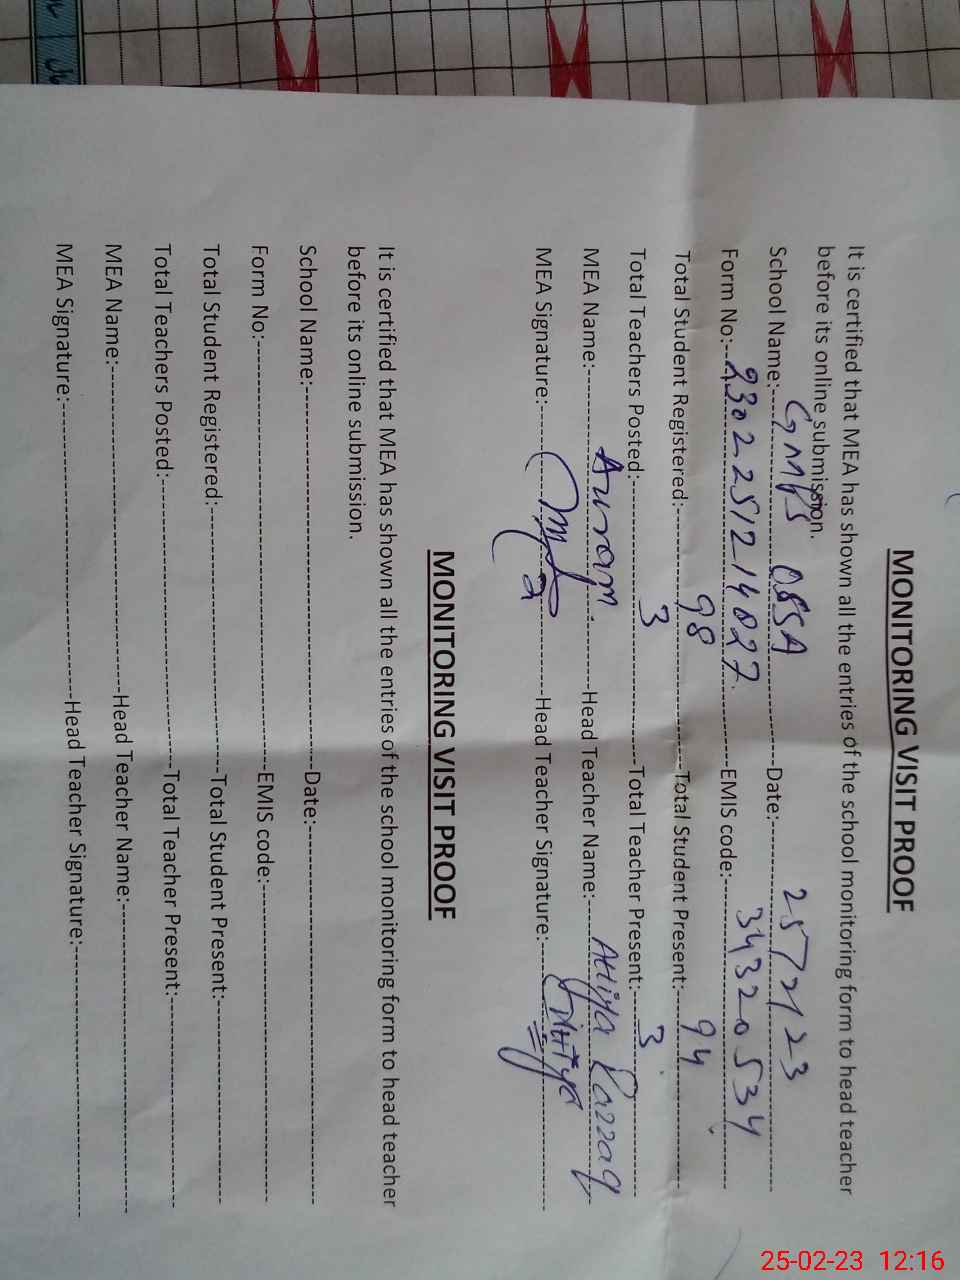 MONITORING VISIT PROOF
It is certified that MEA has shown all the entries of the school monitoring form to head teacher
before its online submission.
School Name:- GMPS Date:- 25/2/23
Form No:- 23022512 14827 EMIS code:- 34320534
Total Student Registered:- 98 Total Student Present:- 94
Total Teachers Posted:- 3 Total Teacher Present:- 3
MEA Name:- Head Teacher Name:- Attiya Razzaq
MEA Signature:- Head Teacher Signature:- Attiya
MONITORING VISIT PROOF
It is certified that MEA has shown all the entries of the school monitoring form to head teacher
before its online submission.
School Name:- Date:-
Form No:- EMIS code:-
Total Student Registered:- Total Student Present:-
Total Teachers Posted:- Total Teacher Present:-
MEA Name:- Head Teacher Name:-
MEA Signature:- Head Teacher Signature:-
25-02-23 12:16